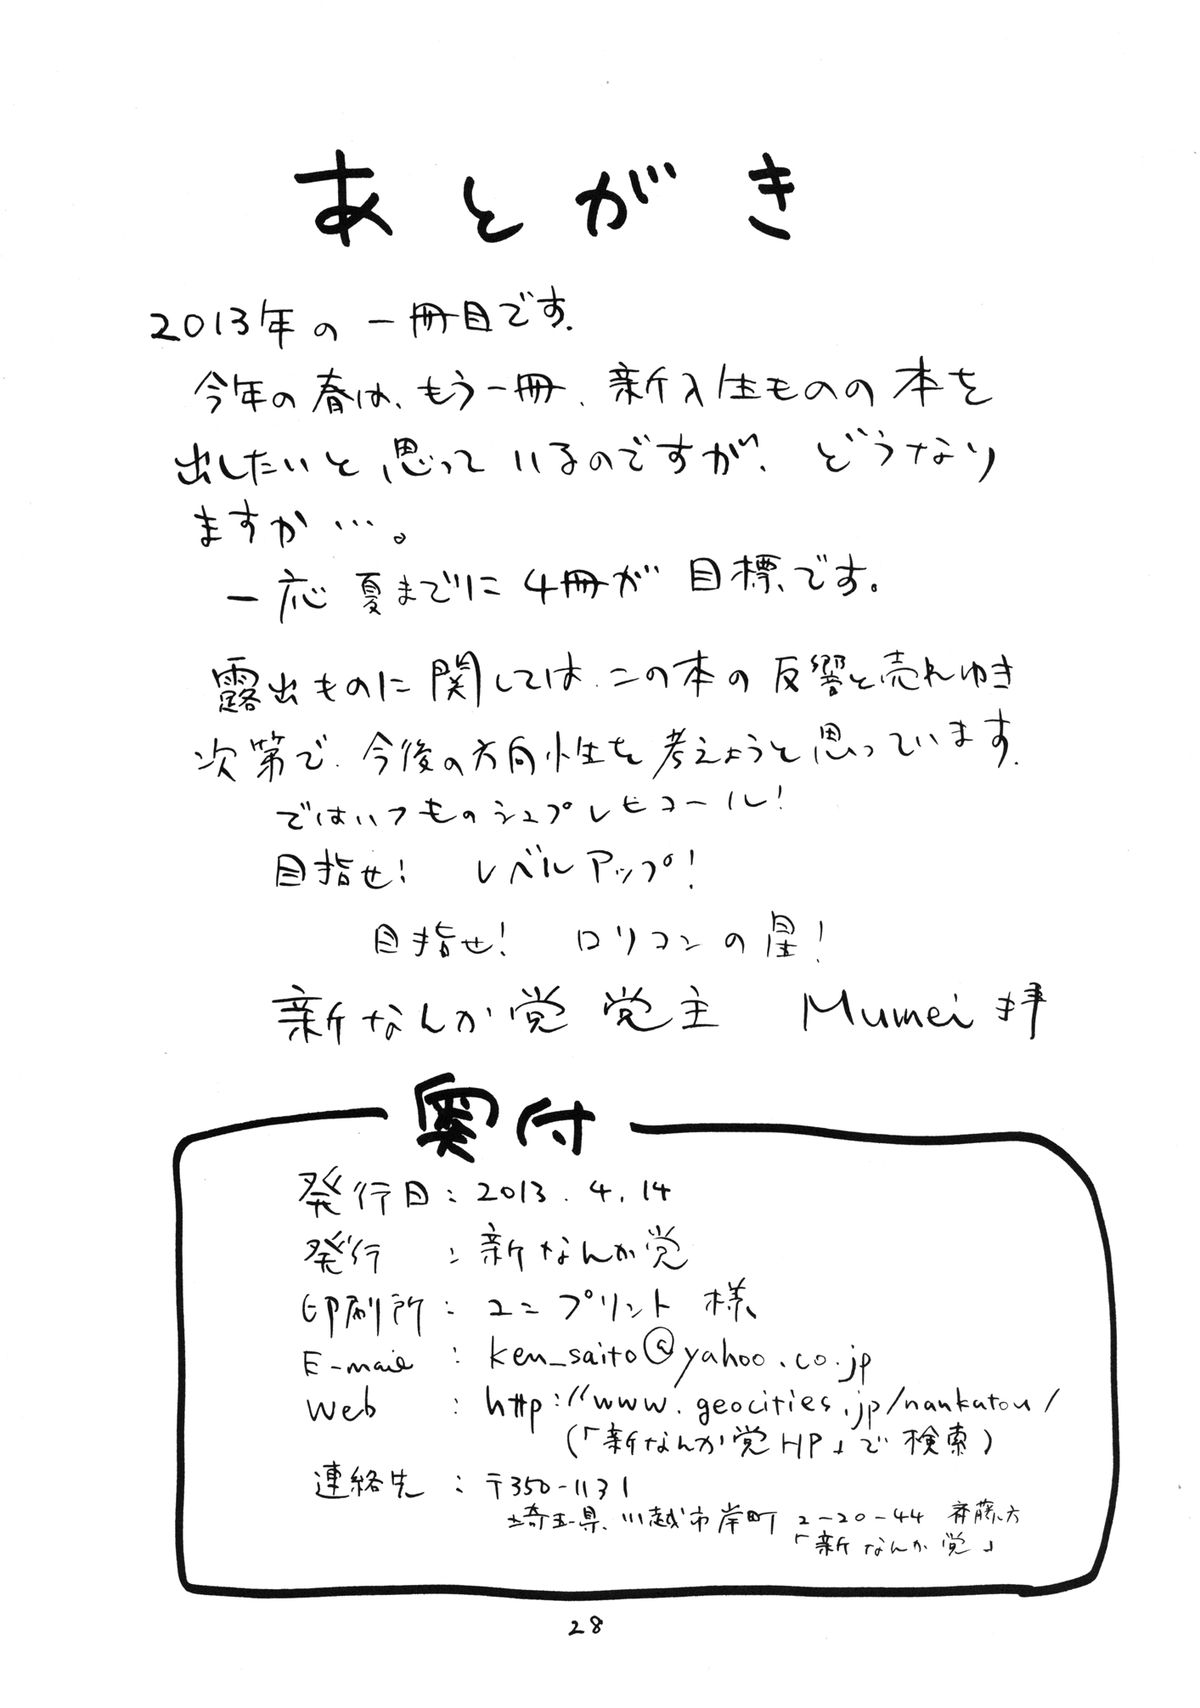 あとがき
2013年の一冊目です.
今年の春は、もう一冊、新入生ものの本を
出したいと思っているのですが、どうなり
ますか…。
一応夏までに4冊が目標です。
露出ものに関しては、この本の反響と売れゆき
次第で、今後の方向性を考えようと思っています.
ではいつものシュプレヒコール!
目指せ! レベルアップ!
目指せ! ロリコンの星!
新なんか党 党主 Mumei 拝
奥付
発行日:2013.4.14
発行:新なんか党
印刷所:ユニプリント 様
E-mail:ken_saito@yahoo.co.jp
Web:http://www.geocities.jp/nankatou/
(「新なんか党HP」で検索)
連絡先:〒350-1131
埼玉県川越市岸町2-20-44 斉藤方
「新なんか党」
28